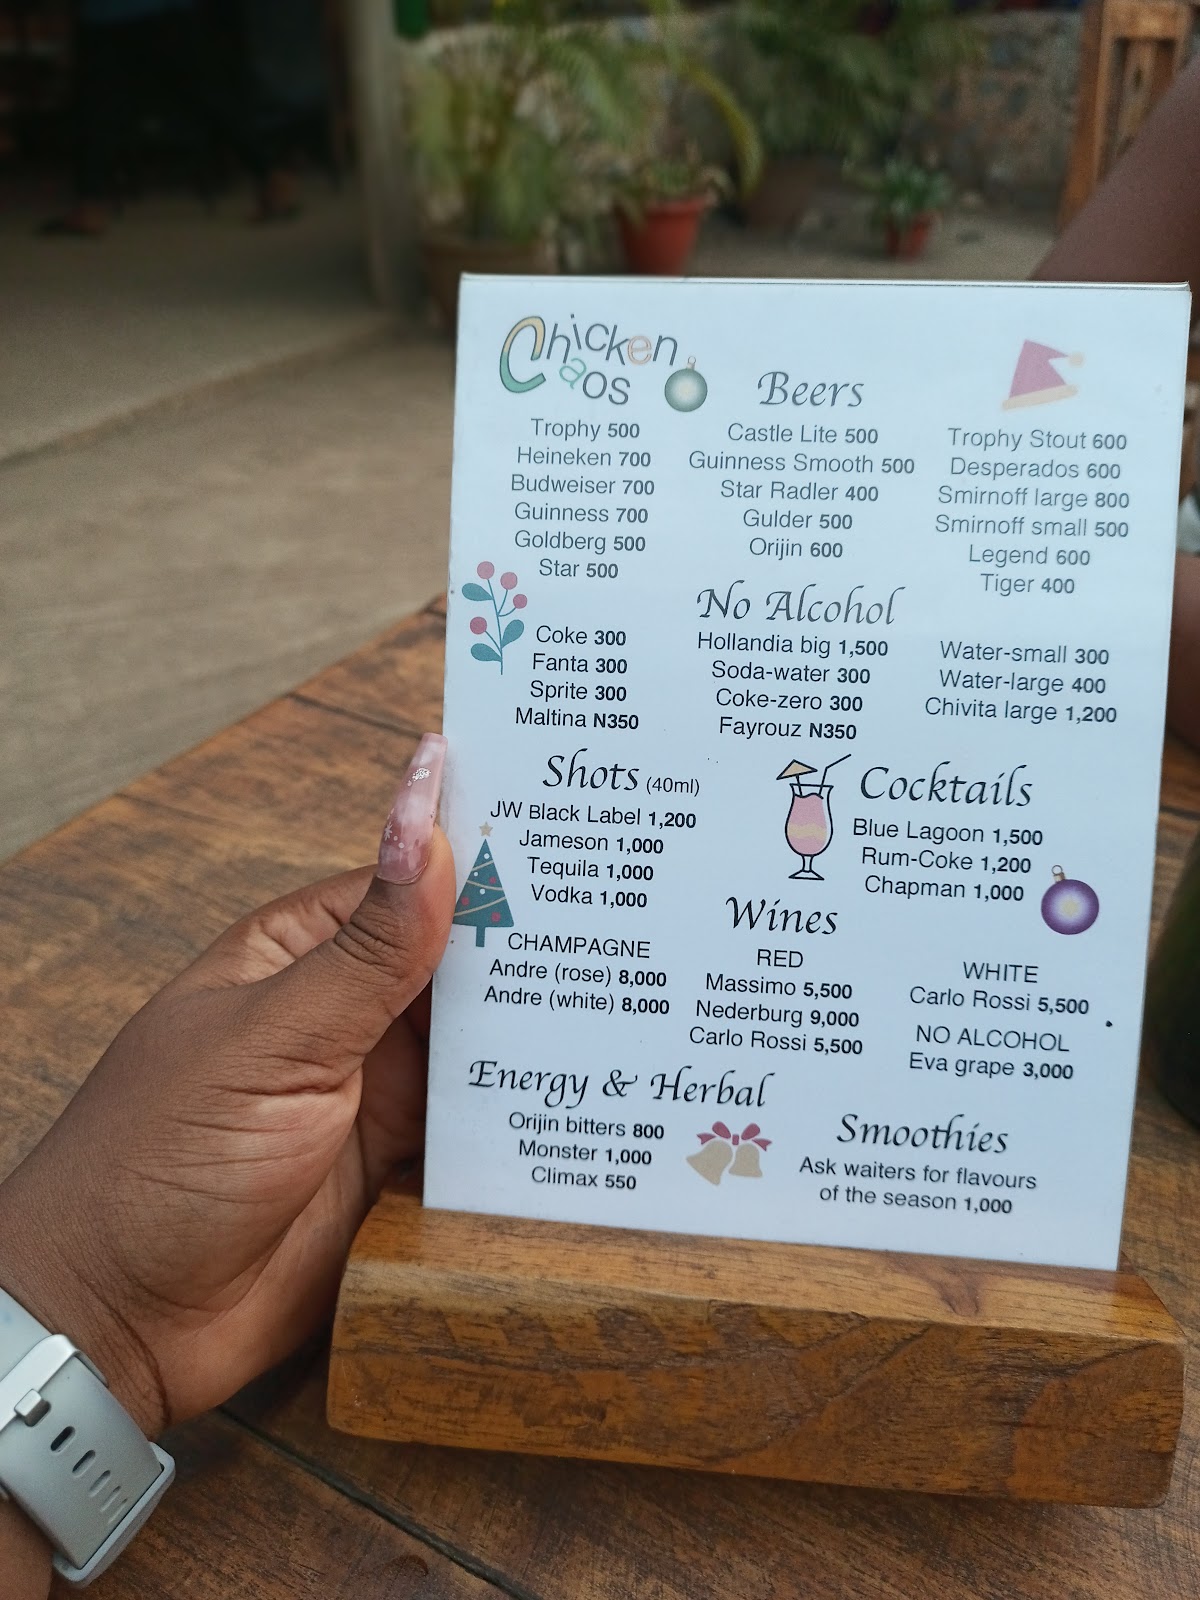 Chicken
Chaos
Beers
Trophy 500
Heineken 700
Budweiser 700
Guinness 700
Goldberg 500
Star 500
Castle Lite 500
Guinness Smooth 500
Star Radler 400
Gulder 500
Orijin 600
Trophy Stout 600
Desperados 600
Smirnoff large 800
Smirnoff small 500
Legend 600
Tiger 400
No Alcohol
Coke 300
Fanta 300
Sprite 300
Maltina N350
Hollandia big 1,500
Soda-water 300
Coke-zero 300
Fayrouz N350
Water-small 300
Water-large 400
Chivita large 1,200
Shots (40ml)
JW Black Label 1,200
Jameson 1,000
Tequila 1,000
Vodka 1,000
Cocktails
Blue Lagoon 1,500
Rum-Coke 1,200
Chapman 1,000
Wines
CHAMPAGNE
Andre (rose) 8,000
Andre (white) 8,000
RED
Massimo 5,500
Nederburg 9,000
Carlo Rossi 5,500
WHITE
Carlo Rossi 5,500
NO ALCOHOL
Eva grape 3,000
Energy & Herbal
Orijin bitters 800
Monster 1,000
Climax 550
Smoothies
Ask waiters for flavours
of the season 1,000